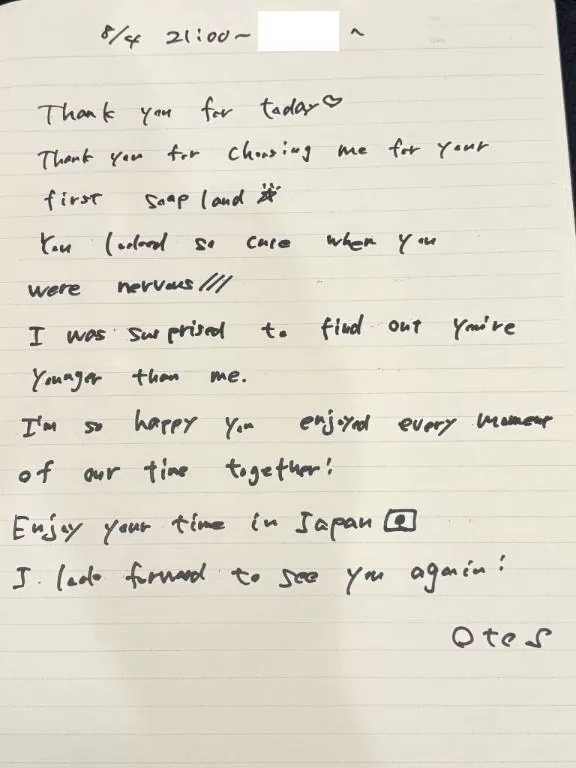 8/4 21:00~ ~
Thank you for today♡
Thank you for choosing me for your
first soapland ☆
You looked so cute when you
were nervous///
I was surprised to find out you're
younger than me.
I'm so happy you enjoyed every moment
of our time together!
Enjoy your time in Japan 🇯🇵
I look forward to see you again!